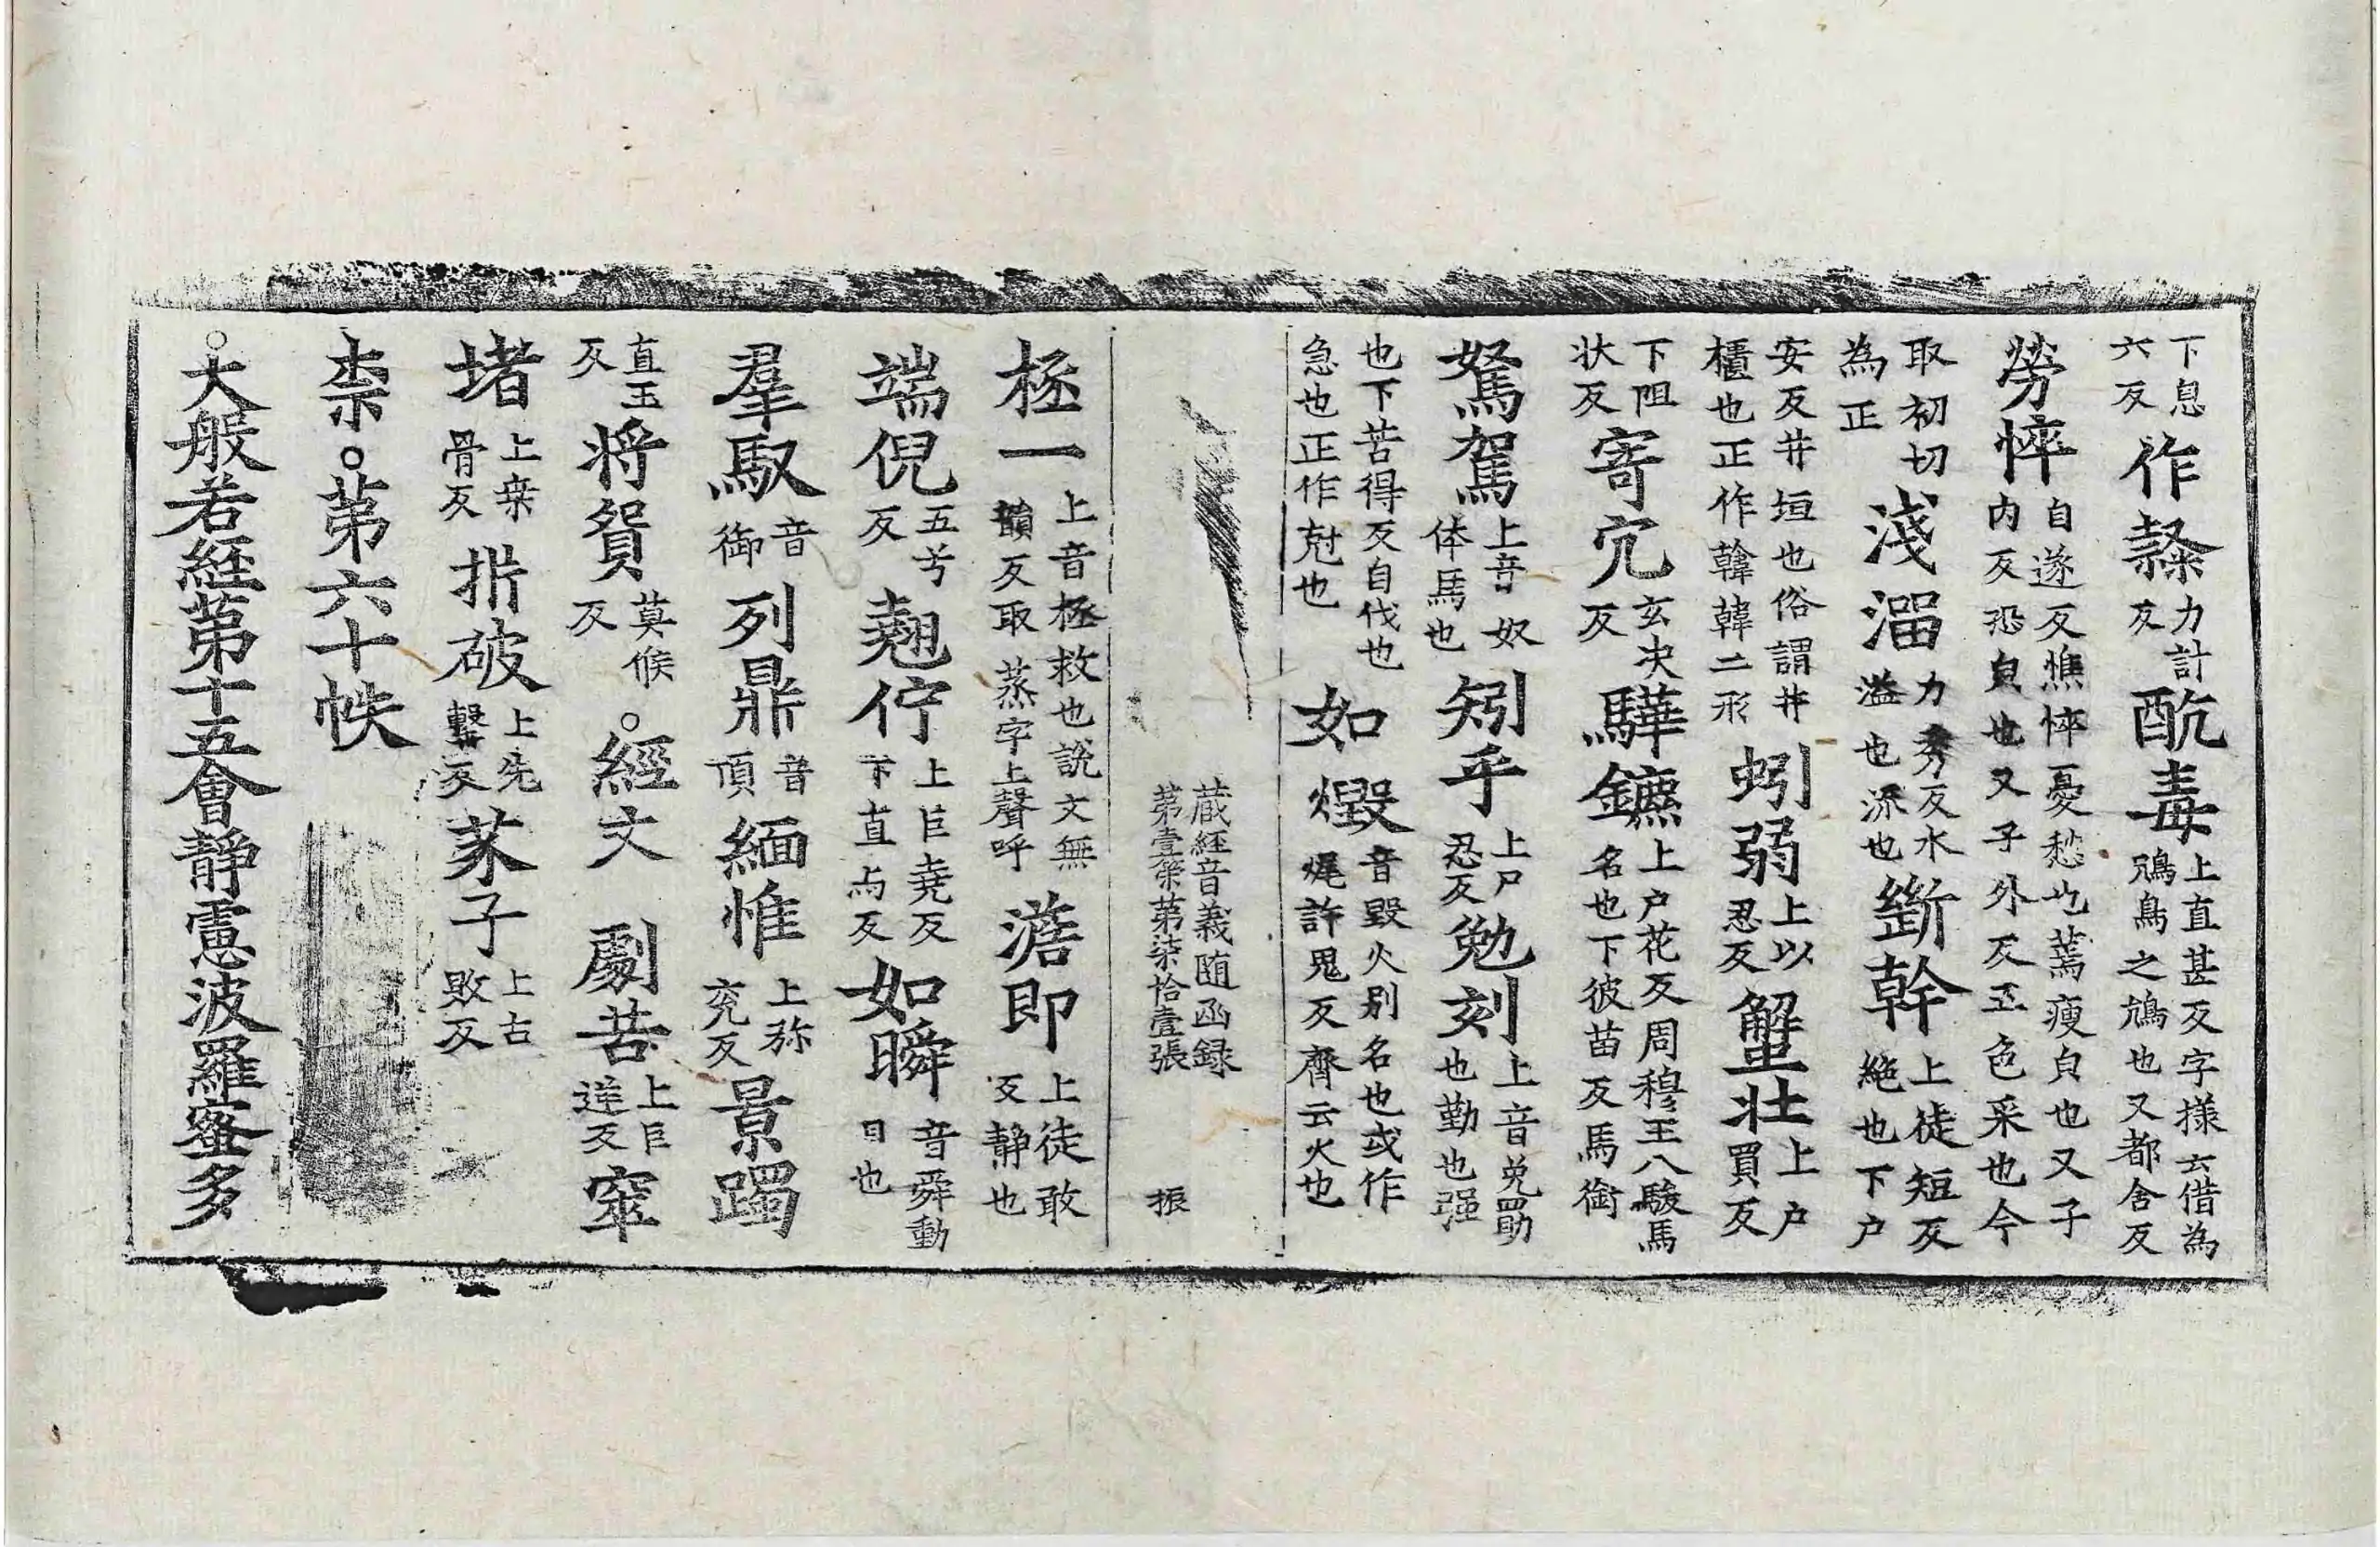 下息六反作盭力計反酖毒上直甚反字様云借為鴆鳥之鴆也又都含反
勞悴自遂反憔悴憂愁也蔫瘦皃也又子内反恐皃也又子外反五色采也今
取初切為正淺溜力秀反水溢也派也斷幹上徒短反絶也下户
安反井垣也俗謂井櫃也正作韓韓二形蚓弱上以忍反蟹壮上户買反
下阻状反寄穴玄决反驊鑣上户花反周穆王八駿馬名也下彼苗反馬銜
駑駕上音奴体馬也矧乎上尸忍反勉刻上音免勗也勤也强
也下苦得反自伐也急也正作尅也如燬音毀火别名也或作㷄許鬼反齊云火也
蔵經音義随函録
第壹筞第柒拾壹張 振
拯一上音極救也說文無韻反取蒸字上聲呼澹即上徒敢反静也
端倪五兮反翹佇上巨堯反下直与反如瞬音舜動目也
羣馭音御列鼎音頂緬惟上弥兖反景躅
直玉反将貿莫候反。經文 劇苦上巨逆反窣
堵上桒骨反㭊破上先擊反芥子上古敗反
柰。第六十帙
。大般若經第十五會靜慮波羅蜜多